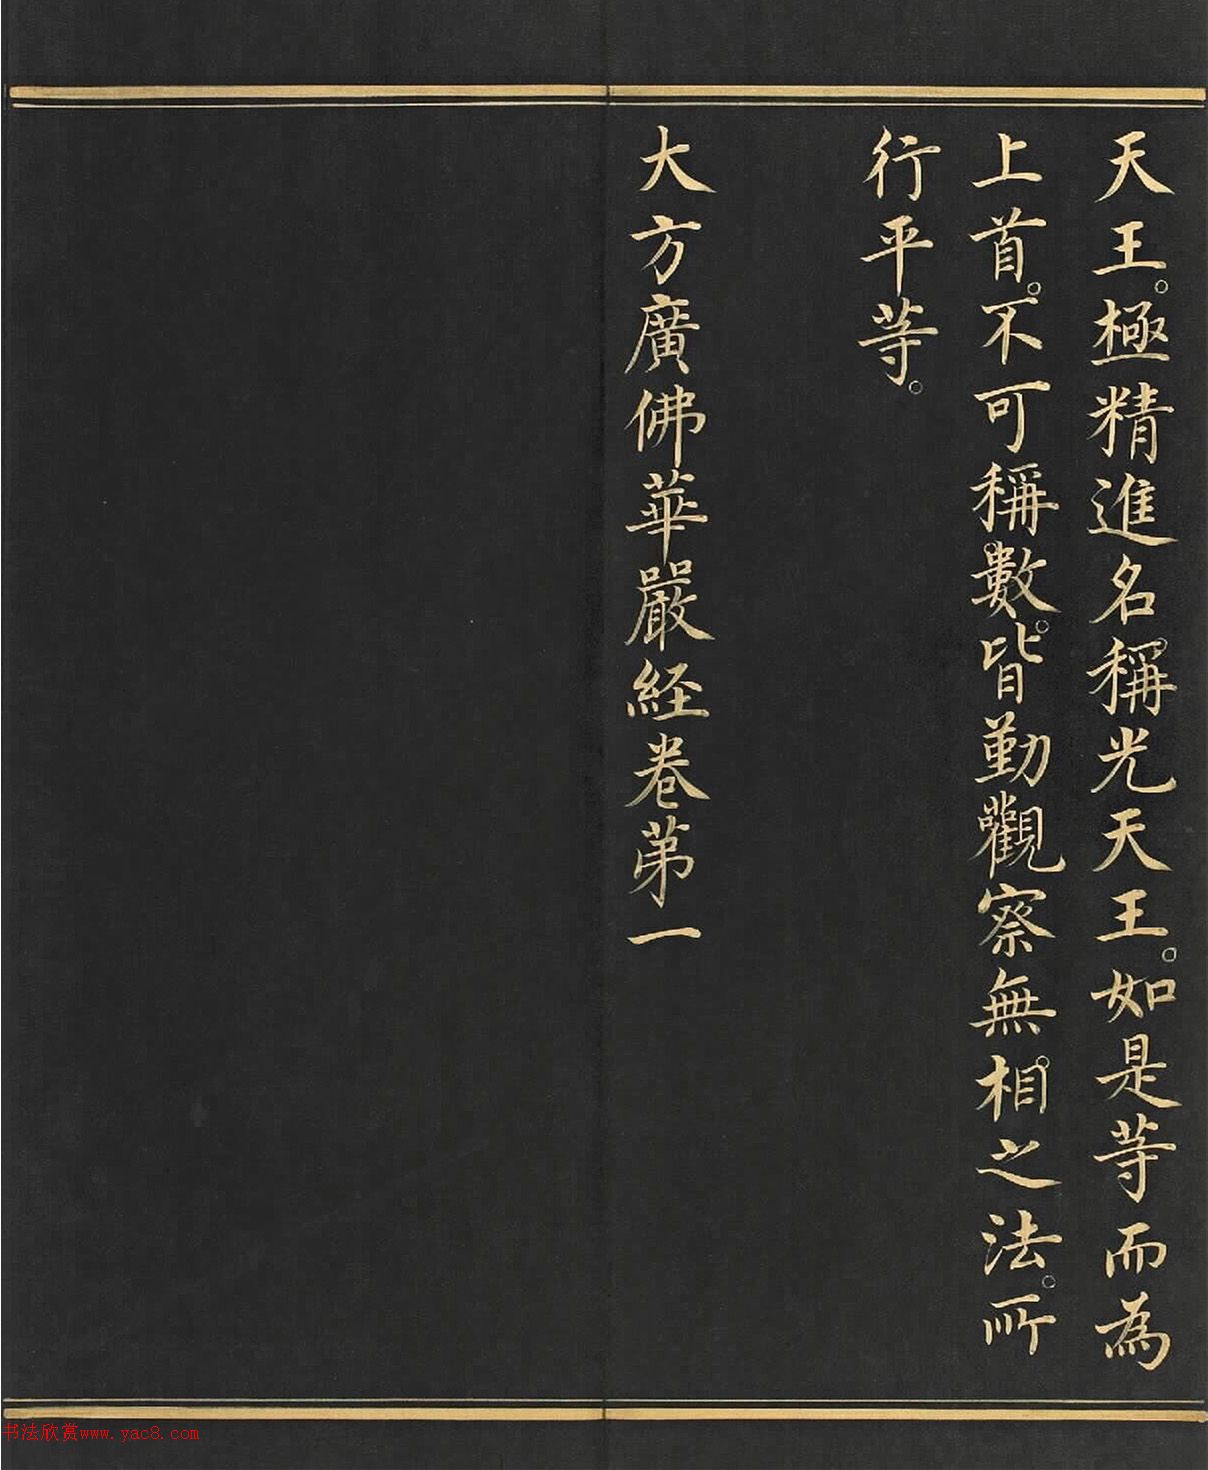 天王。極精進名稱光天王。如是等而為
上首。不可稱數。皆勤觀察無相之法。所
行平等。
大方廣佛華嚴経卷第一
书法欣赏www.yac8.com